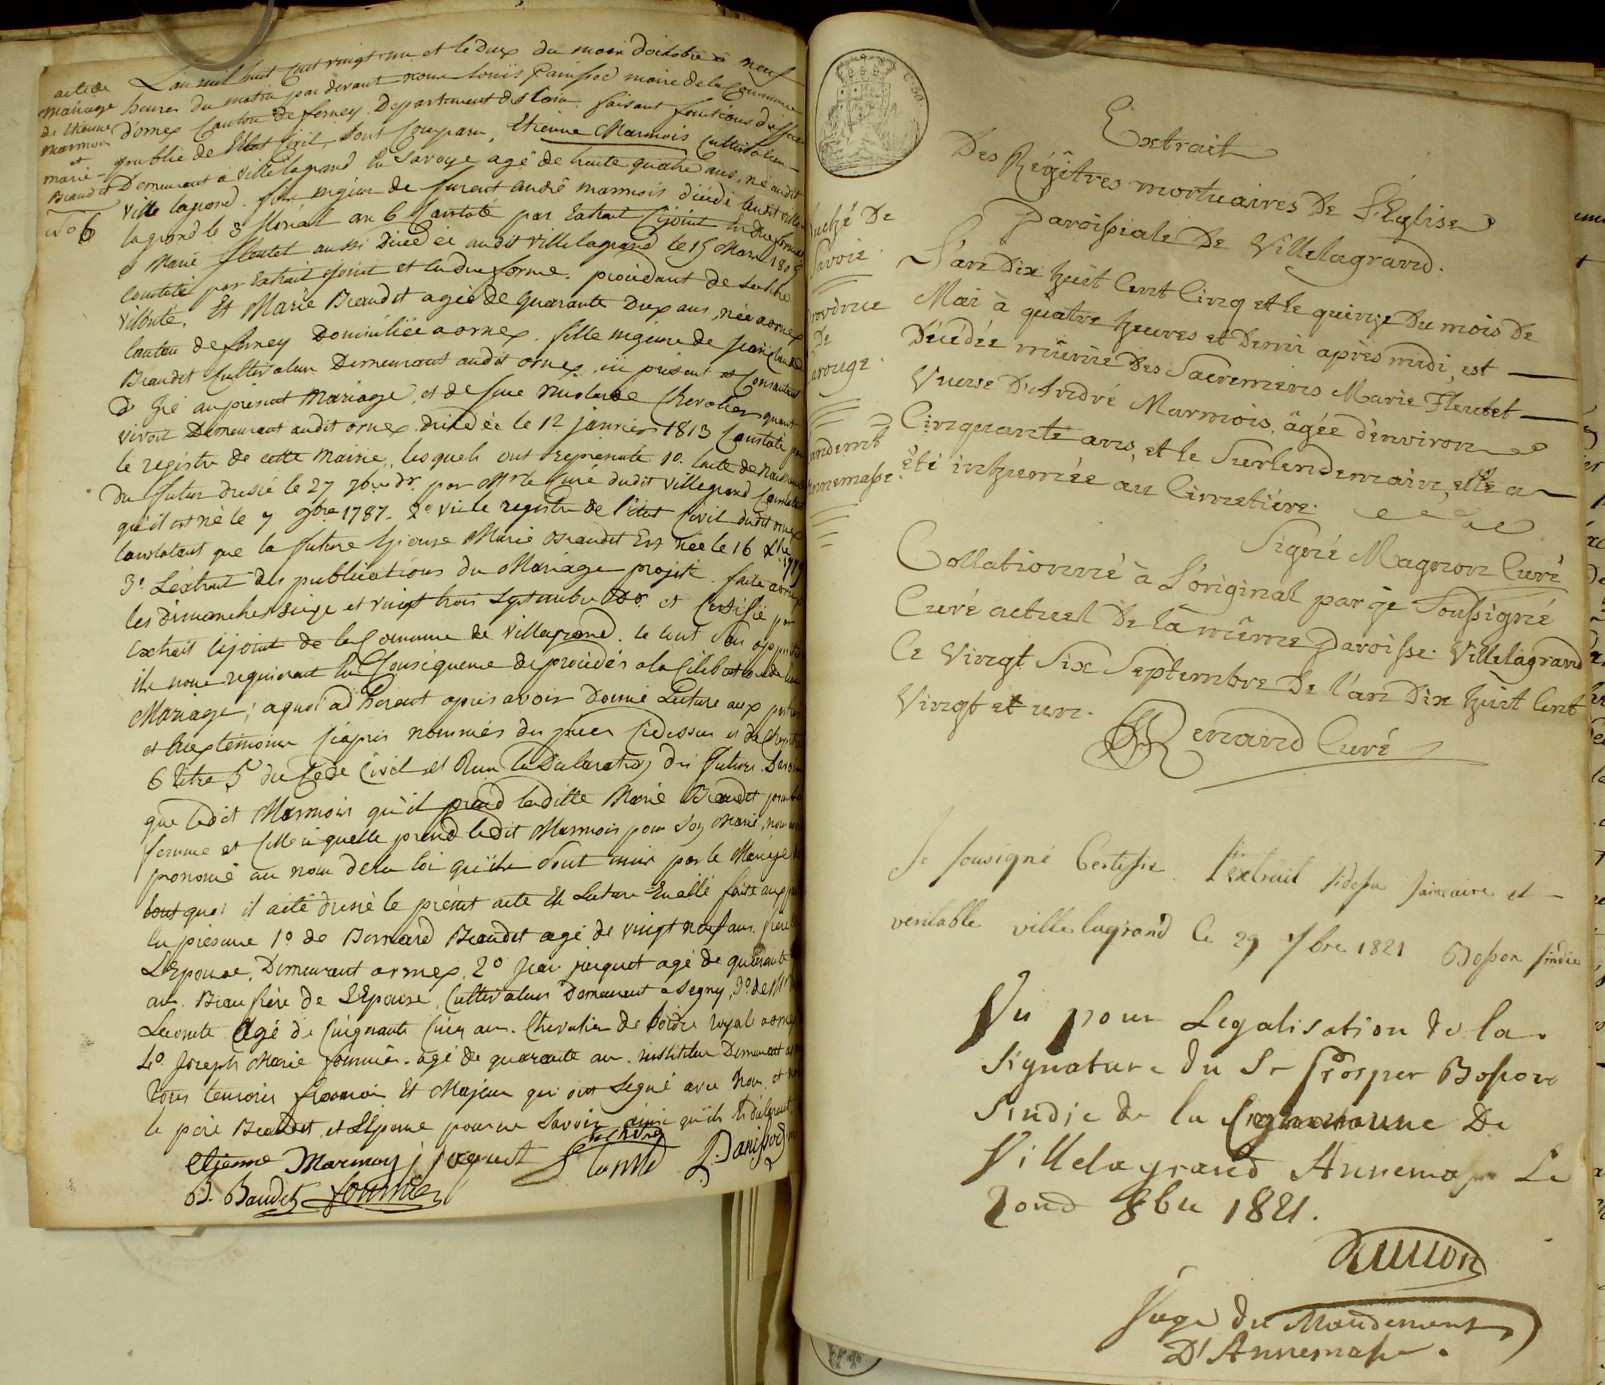 acte de
mariage
de Etienne
Marmois
et
marie
Beaudet
N.o 6
L'an mil huit cent vingt un et le deux du mois d'octobre à neuf
heures du matin par devant nous Louïs Panissod maire de la Commune
d'ornex Canton de ferney, Departement de l'ain faisant fonctions d'officier
public de l'Etat Civil, sont Comparu, Etienne Marmois Cultivateur
Demeurant a Ville lagrand en Savoye agé de trente quatre ans, né audit
Ville lagrand. fils majeur de furent André marmois décédé audit Ville
lagrand le 3 floreal an 6 Constaté par Extrait Cijoint en Due forme
& Marie fleutet aussi décédée audit Villelagrand le 15 Mars 1805
Constaté par Extrait Cijoint et en due forme. procédant de sa libre
Volonté, Et Marie Beaudet agée de quarante Deux ans, née a ornex
Canton de ferney Domiciliée a ornex, fille majeure de
Beaudet Cultivateur Demeurant audit ornex, ici présent et Consentant
au présent Mariage, et de fue Chevalier quand
vivoit Demeurant audit ornex décédée le 12 janvier 1813 Constaté par
le registre de cette Mairie, lesquels ont représenté 1o. l'acte de naissance
du futur dressé le 27 9bre dr. par Mr le Curé dudit Villegrand
qu'il est né le 7 9bre 1787. 2o Vu le registre de l'état Civil dudit ornex
Constatant que la future Epouse Marie Beaudet Est née le 16
3o. L'extrait des publications du Mariage projeté faite a ornex
les dimanches seize et vingt trois Septembre dr. et Certifié par
Extrait Cijoint de la Commune de Villagrand. le tout
ils nous requierent en Conséquence de procéder a la Célébration de leur
Mariage; a quoi adhérent après avoir Donné Lecture aux parties
et aux temoins Ciaprès nommés des pieces Cidessus et du Chapitre
6 titre 5 du Code Civil et Reçu la Déclaration des futurs
que ledit Marmois qu'il prend laditte Marie Beaudet pour
femme et celle ci quelle prend ledit Marmois pour son Mari, nous avons
prononcé au nom de la loi qu'ils sont unis par le Mariage
tout quoi il a été dressé le présent acte Et Lecture En a été faite aux
En présence 1o de Bernard Beaudet agé de vingt neuf ans frere
L'Epouse, Demeurant a ornex, 2o Jean jacquet agé de quarante
ans Beau frère de L'Epouse, Cultivateur Demeurant a Segny, 3o de
Lecomte agé de Cinquante Cinq ans. Chevalier de l'ordre royale a ornex
4o Joseph Marie fournier agé de quarante an instituteur Demeurant
Tous temoins Et Majeur qui ont Signé avec Nous, et non
le pere Beaudet et L'Epouse pour ne Savoir ainsi qu'ils l'ont déclaré
etienne Marmoy j jaquet
L. Panissod
B. Baudet fournier
Extrait
Des Régîtres mortuaires De L'Église
Paroissiale De Villelagrand.
Duché De
Savoie
Province
De
Carouge
Mandemt
D'annemasse.
L'an Dix huit Cent Cinq et le quinze Du mois De
Mai à quatre heures et Demi après midi, est
Décédée munie Des Sacremens Marie Fleutet
Vueve D'André Marmois, âgée d'environ
Cinquante ans, et le Surlendemain, elle a
été inhumée au Cimetière.
Signé Magnon Curé
Collationné à l'original par je Soussigné
Curé actuel De la même Paroisse. Villelagrand
Ce Vingt Six Septembre De l'an Dix huit Cent
Vingt et un.
Renand Curé
Je sousigné Certifie l'extrait sidessu sainceire et
véritable ville lagrand le 29 7bre 1821 Bosson sindic
Vu pour Legalisation de la
Signature du Sr Prosper Bosson
Sindic de la Commune De
Villelagrand Annemasse Le
2ond 8bre 1821.
Juge du Mandement
D'Annemasse.